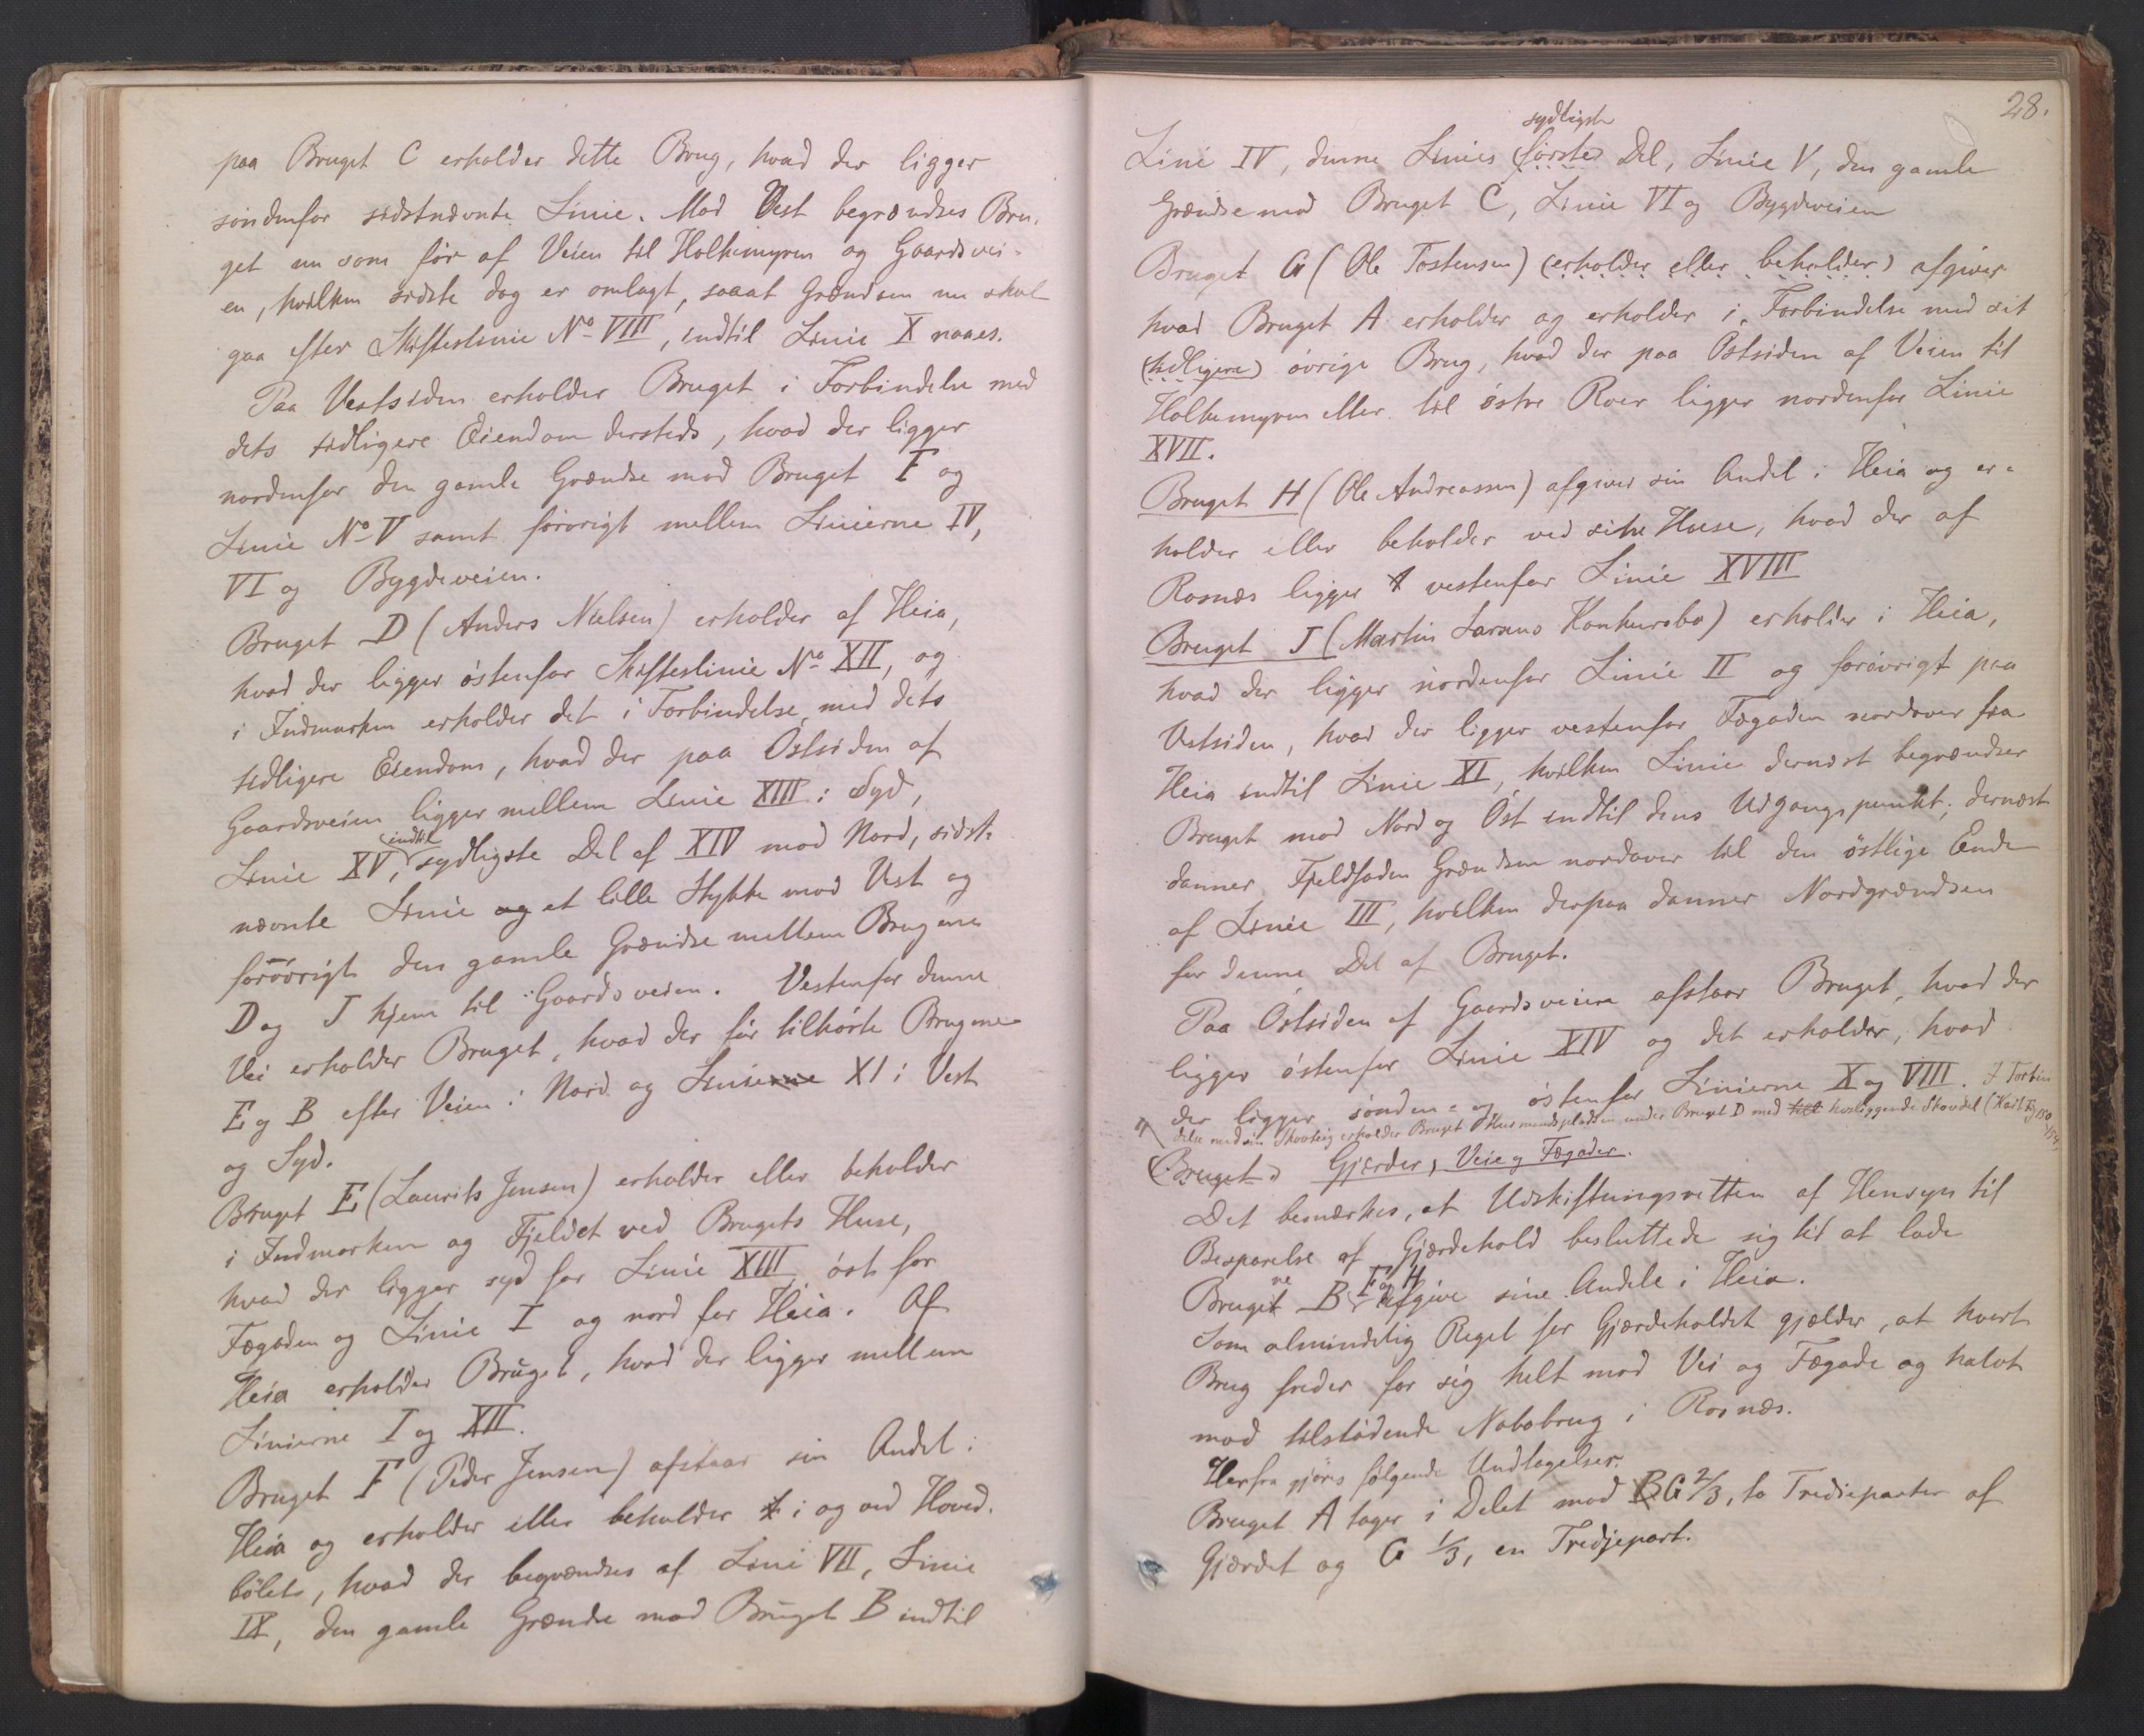 paa Bruget C erholder dette Brug, hvad der ligger
söndenfor sidstnævnte Linie. Mod Vest begrændses Bru-
get nu som för af Veien til Holkemyren og Gaardsvei-
en, hvilken sidste dog er omlagt, saaat Grændsen nu skal
gaa efter Skifteslinie No VIII, indtil Linie X naaes.
Paa Vestsiden erholder Bruget i Forbindelse med
dets tidligere Eiendom dersteds, hvad der ligger
nordenfor den gamle Grændse mod Bruget F og
Linie No V samt forövrigt mellem Linierne IV,
VI og Bygdeveien.
Bruget D (Anders Nielsen) erholder af Heia,
hvad der ligger östenfor Skifteslinie No XII, og
i Indmarken erholder det i Forbindelse med dets
tidligere Eiendom, hvad der paa Östsiden af
Gaardsveien ligger mellem Linie XIII i Syd,
Linie XV, indtil sydligste Del af XIV mod Nord, sidst-
nævnte Linie og et lille Stykke mod Vest og
forövrigt den gamle Grændse mellem Brugene
D og J hjem til Gaardsveien. Vestenfor denne
Vei erholder Bruget, hvad der för tilhörte Brugene
E og B efter Veien i Nord og Linierne XI i Vest
og Syd.
Bruget E (Laurits Jensen) erholder eller beholder
i Indmarken og Fjeldet ved Brugets Huse,
hvad der ligger syd for Linie XIII öst for
Fægaden og Linie I og nord for Heia. Af
Heia erholder Bruget, hvad der ligger mellem
Linierne I og XII.
Bruget F (Peder Jensen) afstaar sin Andel i
Heia og erholder eller beholder i og ved Hoved-
bölet, hvad der begrændses af Linie VII, Linie
IX, den gamle Grændse mod Bruget B indtil
28.
sydligste
Linie IV, denne Linies (förste) Del, Linie V, den gamle
Grændse mod Bruget C, Linie VI og Bygdeveien
Bruget G (Ole Tostensen) (erholder eller beholder) afgiver
hvad Bruget A erholder og erholder i Forbindelse med sit
(tidligere) övrige Brug, hvad der paa Östsiden af Veien til
Holkemyren eller til östre Roer ligger nordenfor Linie
XVII.
Bruget H (Ole Andreassen) afgiver sin Andel i Heia og er-
holder eller beholder ved sine Huse, hvad der af
Rosnæs ligger vestenfor Linie XVIII
Bruget J (Martin Larsens Konkursbo) erholder i Heia,
hvad der ligger nordenfor Linie II og forövrigt paa
Vestsiden, hvad der ligger vestenfor Fægaden nordover fra
Heia indtil Linie XI, hvilken Linie dernæst begrændser
Bruget mod Nord og Öst indtil dens Udgangspunkt; dernæst
danner Fjeldfoden Grændsen nordover til den östlige Ende
af Linie III, hvilken derpaa danner Nordgrændsen
for denne Del af Bruget.
Paa Östsiden af Gaardsveien afstaar Bruget, hvad der
ligger östenfor Linie XIV og det erholder, hvad
der ligger sönden- og östenfor Linierne X og VIII. I Forbin
delse med sin Skovteig erholder Bruget J Husmandspladsen under Bruget D med hosliggende Skovdel
(Bruget) Gjærder, Veie og Fægader.
Det bemærkes, at Udskiftningsretten af Hensyn til
Besparelse af Gjærdehold besluttede sig til at lade
Brugene B F og H afgive sine Andele i Heia.
Som almindelig Regel for Gjærdeholdet gjælder, at hvert
Brug freder for sig helt mod Vei og Fægade og halvt
mod tilstödende Nabobrug i Rosnæs.
Herfra gjöres fölgende Undtagelser.
Bruget A tager i Delet mod B G 2/3, to Trediepar­ter af
Gjærdet og G 1/3, en Tredjepart.